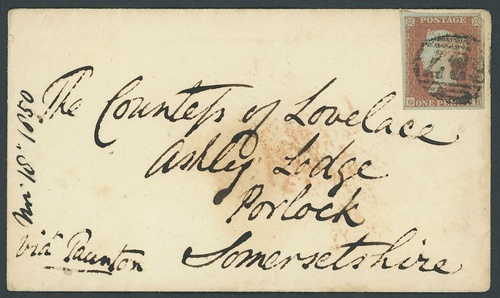 POSTAGE
ONE PENNY
The Countess of Lovelace
Ashley Lodge
Porlock
Somersetshire
viâ Taunton
18 1850